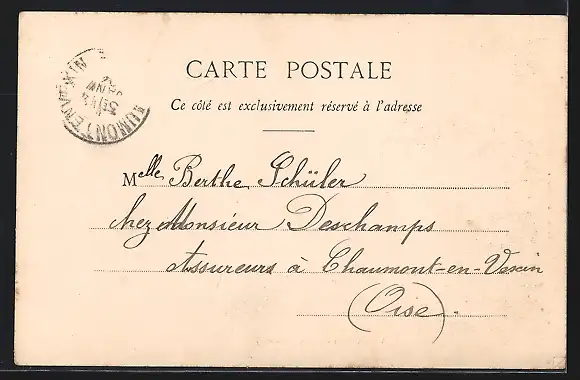 CARTE POSTALE
Ce côté est exclusivement réservé à l'adresse
Melle Berthe Schüler
chez Monsieur Deschamps
Assureurs à Chaumont-en-Vexin
(Oise).